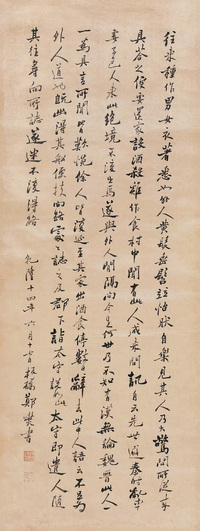 往來種作男女衣著悉如外人黃髮垂髫並怡然自樂見其人乃大驚問所從來
具答之便要還家設酒殺雞作食村中聞有此人咸來問訊自云先世避秦時亂率
妻子邑人來此絕境不復出焉遂與外人間隔問今是何世乃不知有漢無論魏晉此人
一一為具言所聞皆歎惋餘人各復延至其家出酒食停數日辭去此中人語云不足為
外人道也既出得其船便扶向路處處誌之及郡下詣太守說如此太守即遣人隨
其往尋向所誌遂迷不復得路
乾隆十四年六月十日板橋鄭燮書